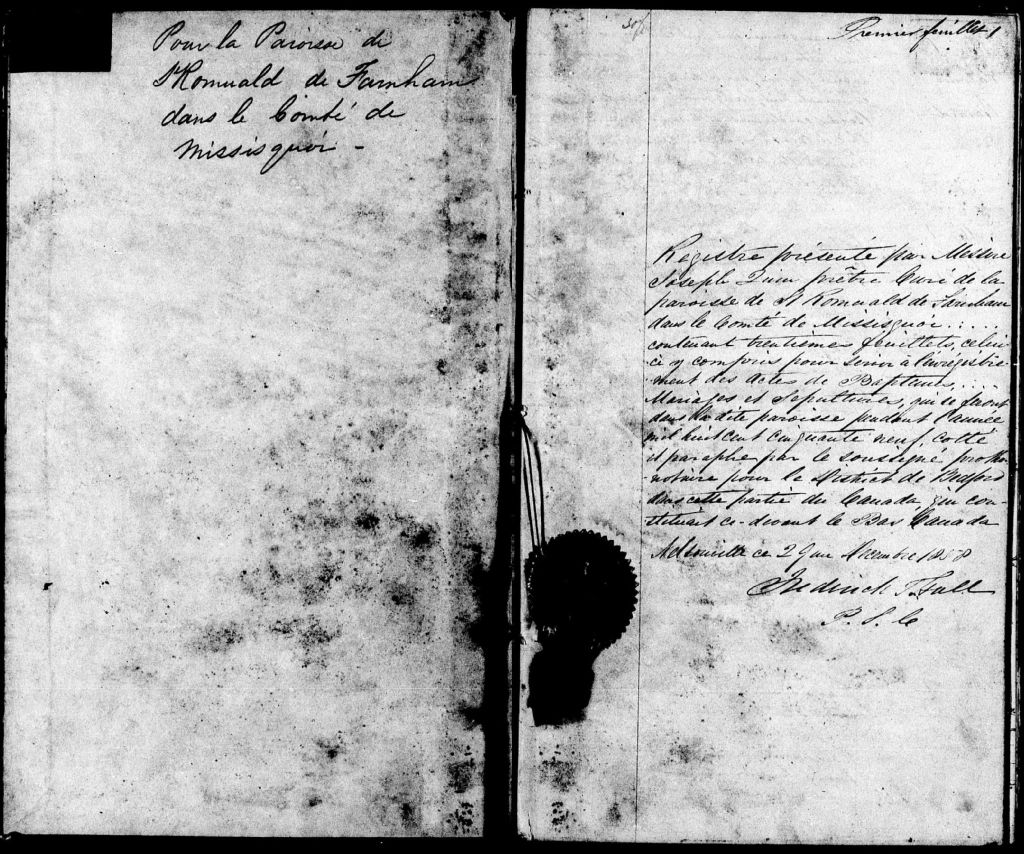 Pour la Paroisse de
St Romuald de Farnham
dans le Comté de
Missisquoi -
Premier feuillet 1
Registre présenté par Messire
Joseph Quin prêtre Curé de la
paroisse de St Romuald de Farnham
dans le Comté de Missisquoi .....
contenant feuillets, celui
ci y compris pour servir à l'enrégistre
ment des Actes de Baptêmes, ....
Mariages et Sépultures, qui se feront
dans la dite paroisse pendant l'année
mil huit cent cinquante neuf, cotté
et paraphé par le soussigné protho
notaire pour le District de Bedford
dans cette partie du Canada, qui con-
stituait ci-devant le Bas Canada
ce Décembre 1858
Frederick T. Hall
P. S. C